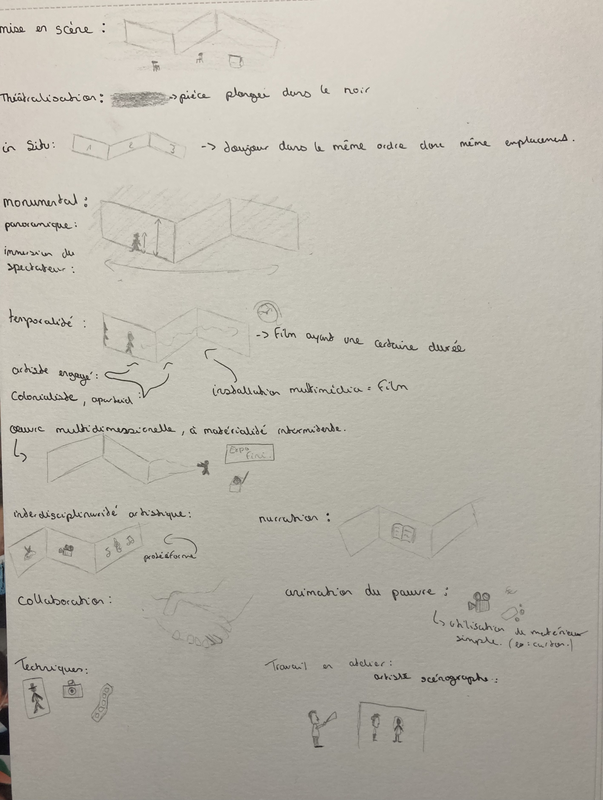 mise en scène :
Théâtralisation : -> pièce plongei dans le noir
in Situ : 1 2 3 -> toujour dans le même ordre donc même emplacement.
monumental :
panoramique :
immersion du
spectateur :
temporalité :
-> Film ayant une certaine durée
artiste engagé :
Colonialiste, apartaid :
installation multimédia = Film
œuvre multidimessionelle, à matérialité intermitente.
Expo
Fini
interdisciplinarité artistique :
narration :
protéiforme
Collaboration :
animation du pauvre :
utilisation de matériaux
simple. (ex: carton.)
Techniques :
Travail en atelier :
artiste scénographe :